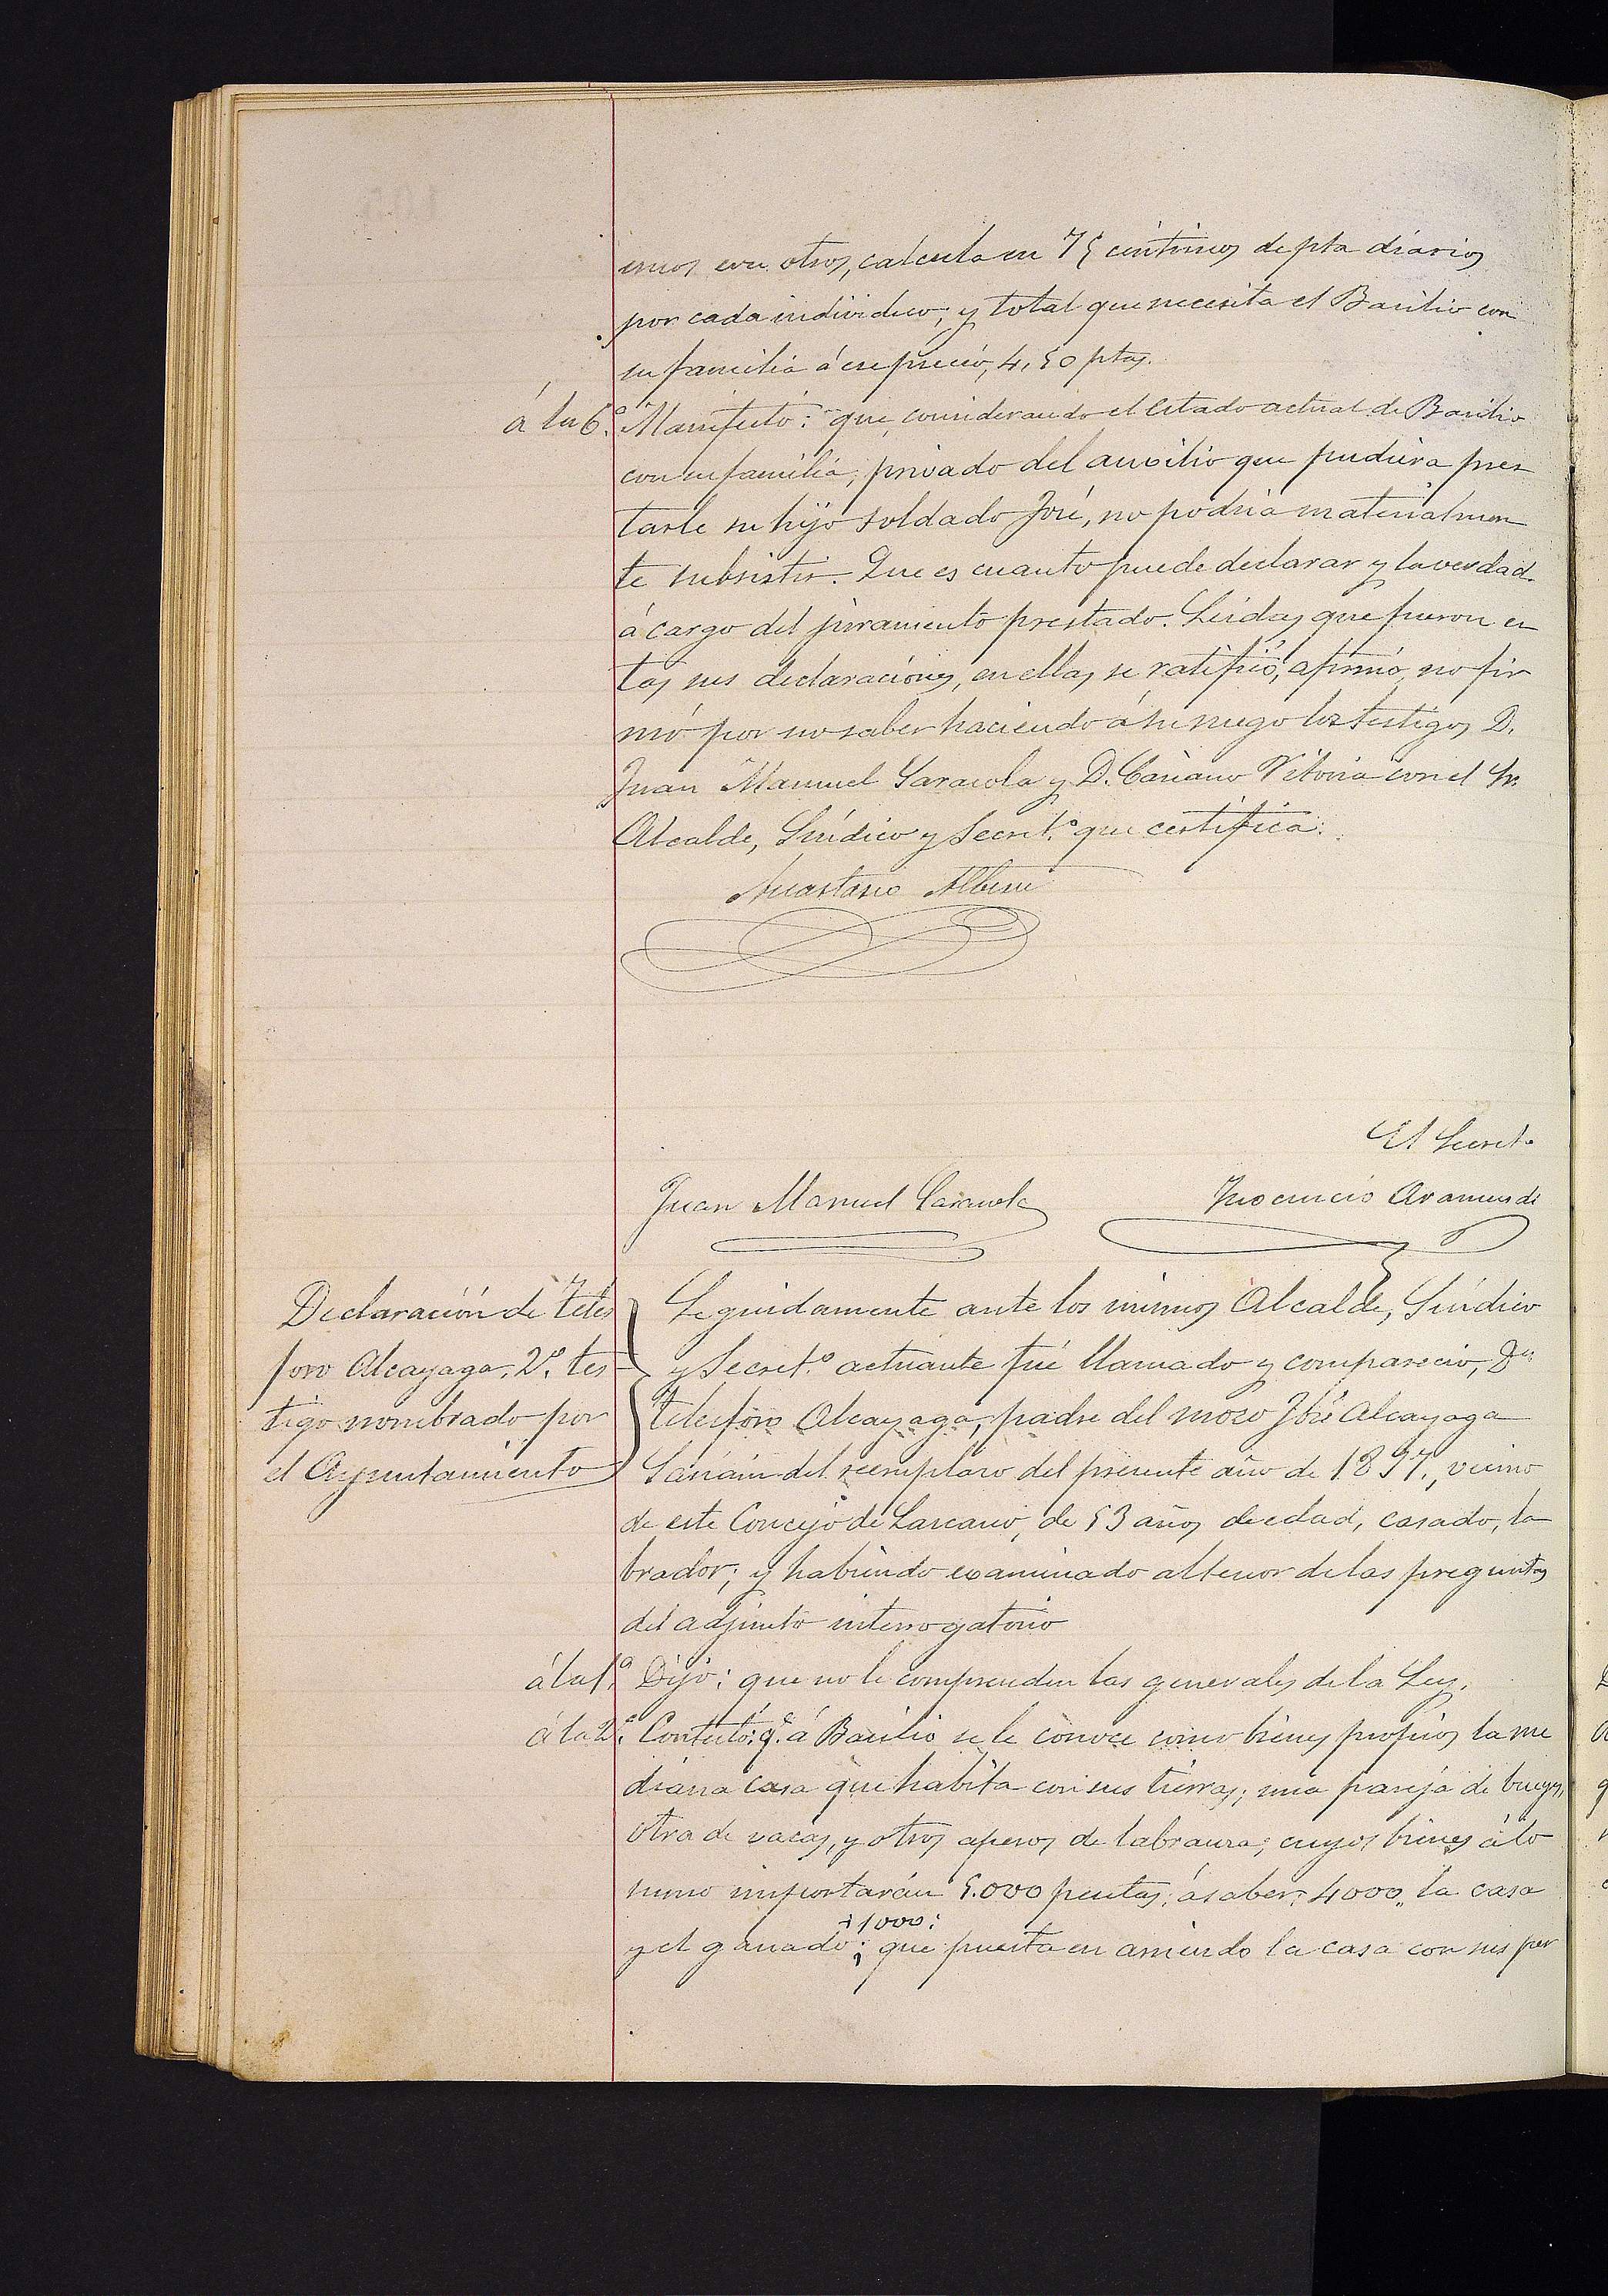 unos con otros, calcula en 75 céntimos de pta diarios
por cada individuo; y total que necesita el Basilio con
su familia á ese precio, 4,50 ptas.
á la 6.ª Manifestó: que, considerando el Estado actual de Basilio
con su familia, privado del auxilio que pudiera pres
tarle su hijo soldado José, no podria materialmen
te subsistir. Que es cuanto puede declarar y la verdad
á cargo del juramento prestado. Leidas que fueron es
tas sus declaraciones, en ellas se ratificó, afirmó, no fir
mó por no saber haciendo á su ruego los testigos D.
Juan Manuel Garaicola y D. Casiano Vitoria con el Sr.
Alcalde, Síndico y Secret.º que certifica.
Anastasio Albisu
El Secret.o
Juan Manuel Garaicola
Inocencio Aramendi
Declaración de Teles
foro Alcayaga, 2.º tes
tigo nombrado por
el Ayuntamiento
Seguidamente ante los mismos Alcalde, Síndico
y Secret.º actuante fué llamado y compareció, Dn
Telesforo Alcayaga, padre del mozo José Alcayaga
del reemplazo del presente año de 1897, vecino
de este Concejo de Lazcano, de 53 años de edad, casado, la
brador; y habiendo examinado al tenor de las preguntas
del adjunto interrogatorio
á la 1.ª Dijo: que no le comprenden las generales de la Ley.
á la 2.ª Contestó: q.e á Basilio se le conoce como bienes propios la me
diana casa que habita con sus tierras; una pareja de bueyes,
otra de vacas, y otros aperos de labranza; cuyos bienes á lo
sumo importarán 5.000 pesetas; á saber: 4000,, la casa
+ 1000:
y el ganado; que puesta en arriendo la casa con sus per